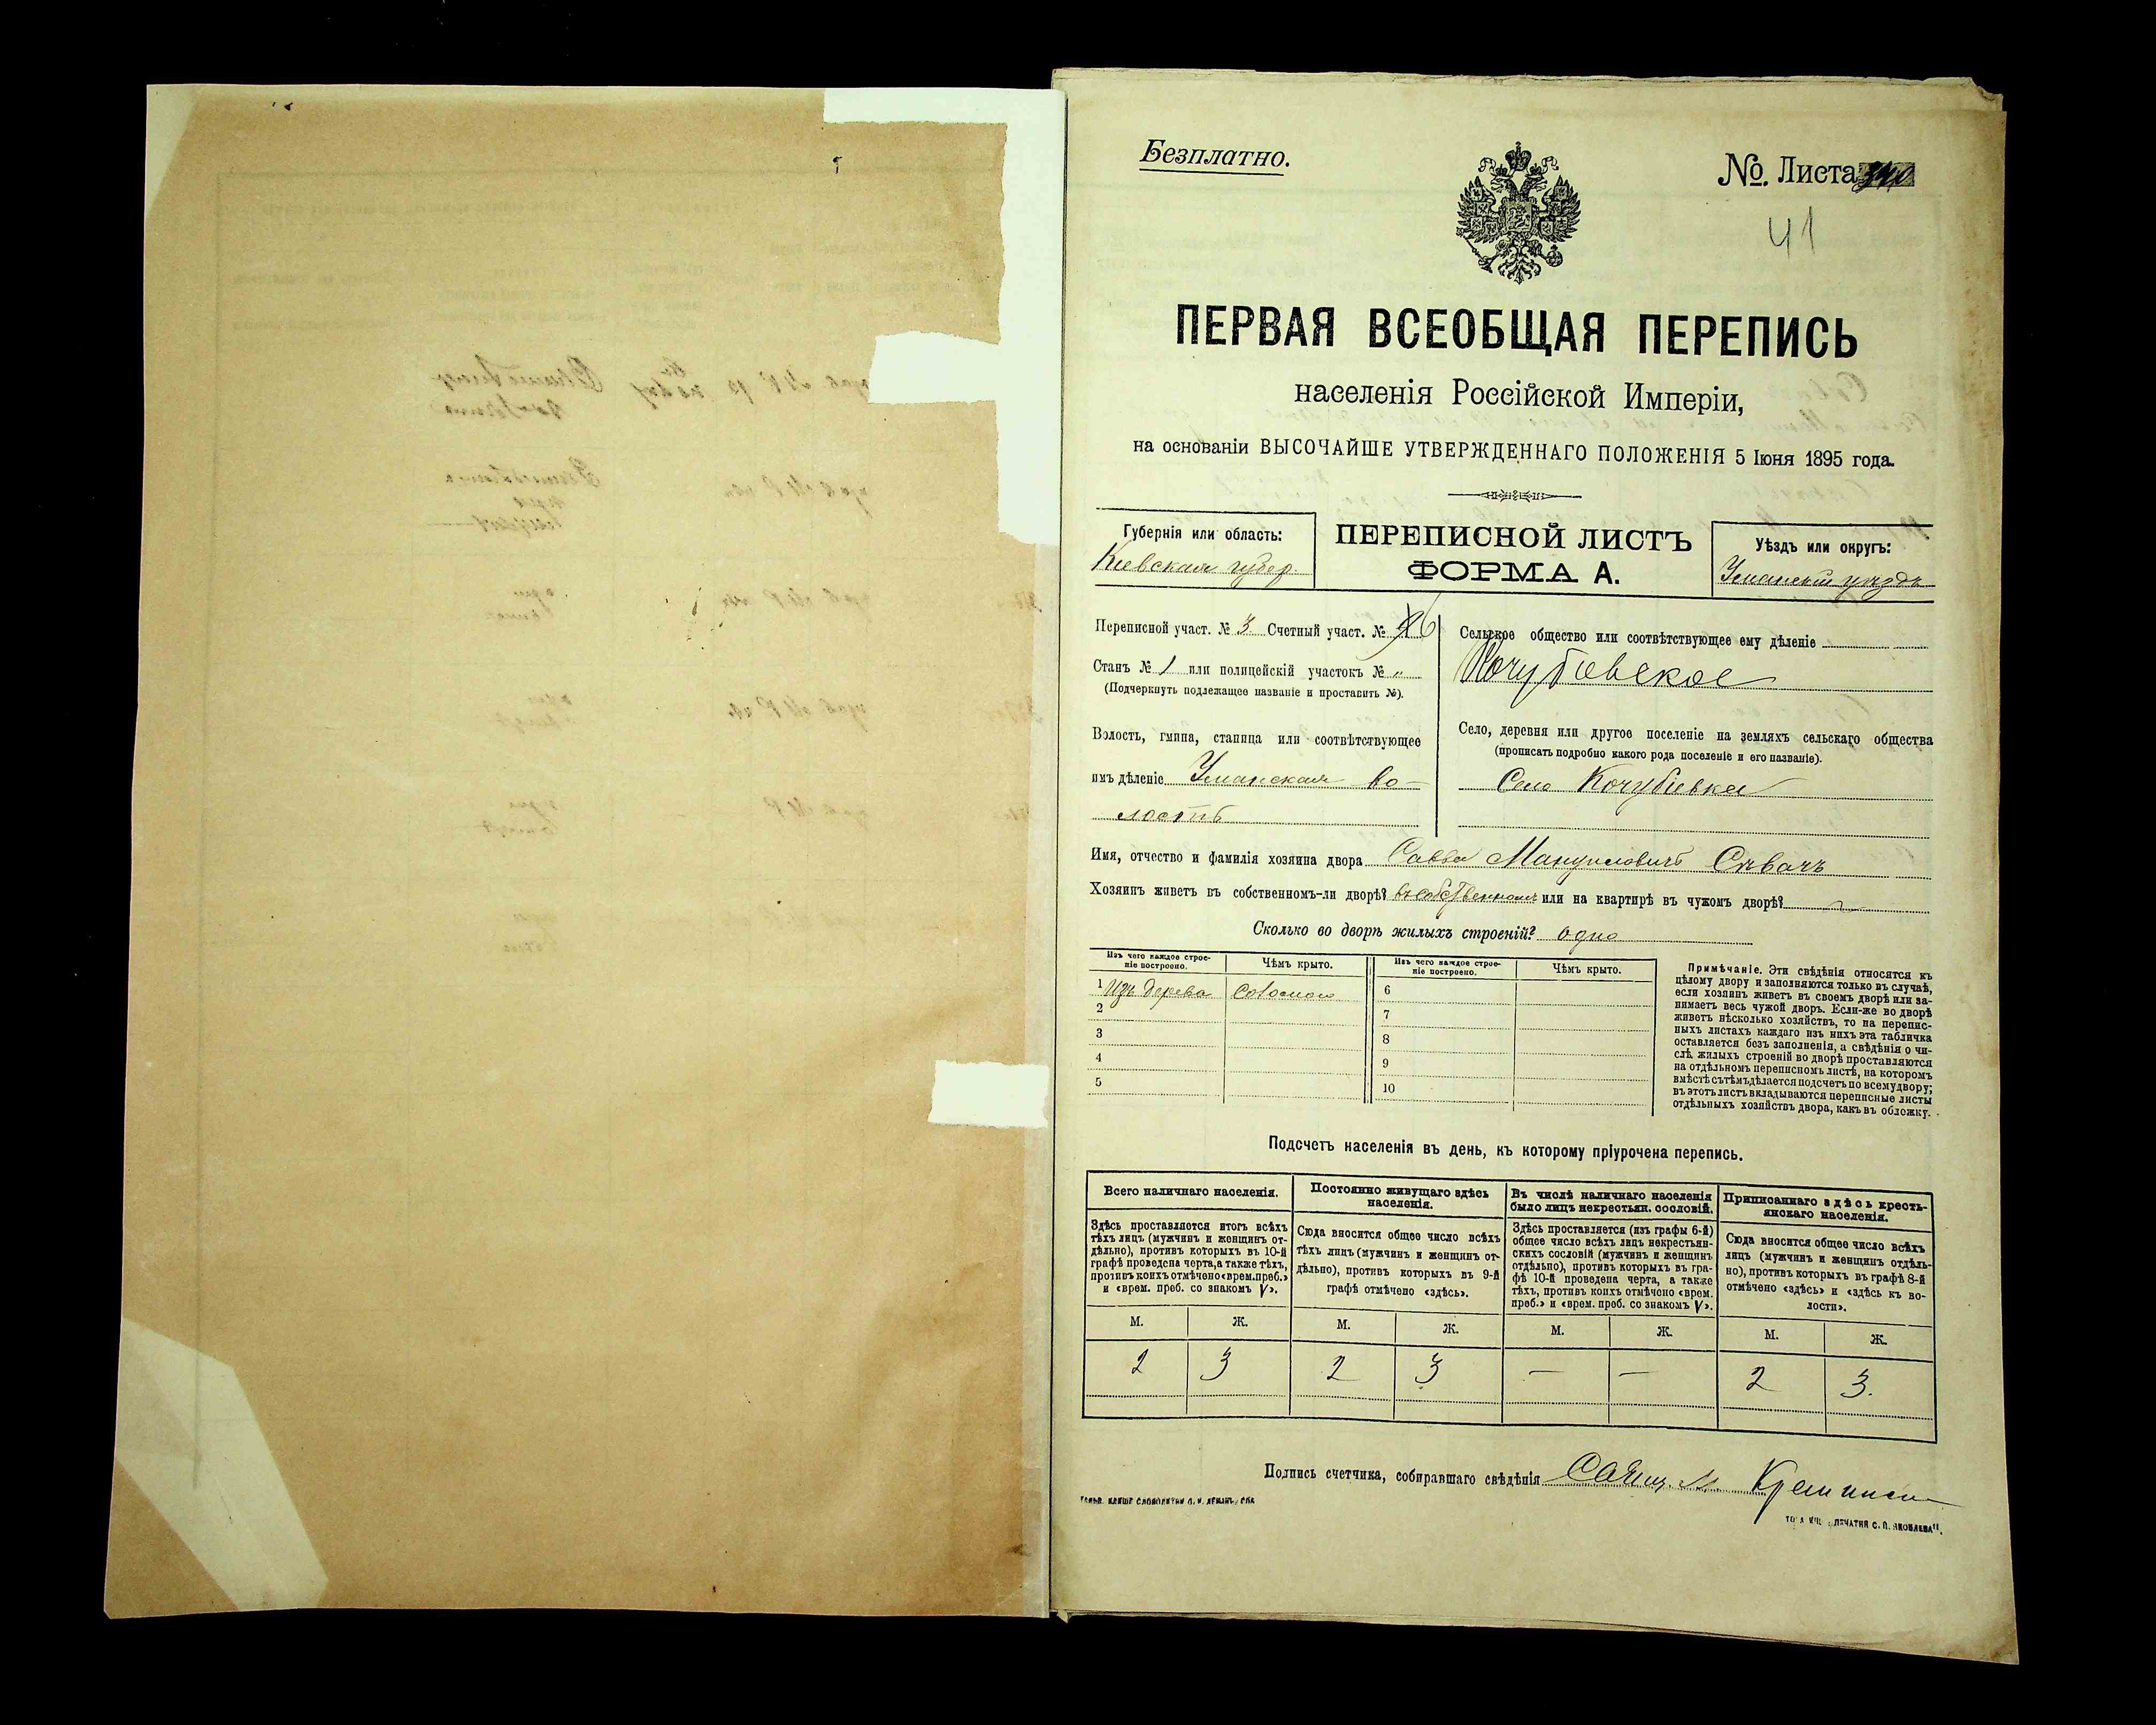 Безплатно.
№. Листа
41
ПЕРВАЯ ВСЕОБЩАЯ ПЕРЕПИСЬ
населенія Россійской Имперіи,
на основаніи ВЫСОЧАЙШЕ УТВЕРЖДЕННАГО ПОЛОЖЕНІЯ 5 Іюня 1895 года.
Губернія или область:
Кіевская губер.
ПЕРЕПИСНОЙ ЛИСТЪ
ФОРМА А.
Уѣздъ или округъ:
Уманскій уѣздъ
Переписной участ. № 3 Счетный участ. № 6
Станъ № 1 или полицейскій участокъ № „
(Подчеркнуть подлежащее названіе и проставить №).
Волость, гмина, станица или соотвѣтствующее
имъ дѣленіе Уманская во-
лость
Сельское общество или соотвѣтствующее ему дѣленіе
Кочубіевское
Село, деревня или другое поселеніе на земляхъ сельскаго общества
(прописать подробно какого рода поселеніе и его названіе).
Село Кочубіевка
Имя, отчество и фамилія хозяина двора Савва Мануиловичъ Сѣвачъ
Хозяинъ живетъ въ собственномъ-ли дворѣ? въ собственномъ или на квартирѣ въ чужомъ дворѣ?
Сколько во дворѣ жилыхъ строеній? одно
Изъ чего каждое строе-
ніе построено.
Чѣмъ крыто.
Изъ чего каждое строе-
ніе построено.
Чѣмъ крыто.
1 Изъ дерева Соломою
2
3
4
5
6
7
8
9
10
Примѣчаніе. Эти свѣдѣнія относятся къ
цѣлому двору и заполняются только въ случаѣ,
если хозяинъ живетъ въ своемъ дворѣ или за-
нимаетъ весь чужой дворъ. Если-же во дворѣ
живетъ нѣсколько хозяйствъ, то на перепис-
ныхъ листахъ каждаго изъ нихъ эта табличка
оставляется безъ заполненія, а свѣдѣнія о чи-
слѣ жилыхъ строеній во дворѣ проставляются
на отдѣльномъ переписномъ листѣ, на которомъ
вмѣстѣ съ тѣмъ дѣлается подсчетъ по всему двору;
въ этотъ листъ вкладываются переписные листы
отдѣльныхъ хозяйствъ двора, какъ въ обложку.
Подсчетъ населенія въ день, къ которому пріурочена перепись.
Всего наличнаго населенія.
Здѣсь проставляется итогъ всѣхъ
тѣхъ лицъ (мужчинъ и женщинъ от-
дѣльно), противъ которыхъ въ 10-й
графѣ проведена черта, а также тѣхъ,
противъ коихъ отмѣчено «врем. преб.»
и «врем. преб. со знакомъ V».
Постоянно живущаго здѣсь
населенія.
Сюда вносится общее число всѣхъ
тѣхъ лицъ (мужчинъ и женщинъ от-
дѣльно), противъ которыхъ въ 9-й
графѣ отмѣчено «здѣсь».
Въ числѣ наличнаго населенія
было лицъ некрестьян. сословій.
Здѣсь проставляется (изъ графы 6-й)
общее число всѣхъ лицъ некрестьян-
скихъ сословій (мужчинъ и женщинъ
отдѣльно), противъ которыхъ въ гра-
фѣ 10-й проведена черта, а также
тѣхъ, противъ коихъ отмѣчено «врем.
преб.» и «врем. преб. со знакомъ V».
Приписаннаго здѣсь кресть-
янскаго населенія.
Сюда вносится общее число всѣхъ
лицъ (мужчинъ и женщинъ отдѣль-
но), противъ которыхъ въ графѣ 8-й
отмѣчено «здѣсь» и «здѣсь къ во-
лости».
М. Ж. М. Ж. М. Ж. М. Ж.
2 3 2 3 — — 2 3.
Подпись счетчика, собиравшаго свѣдѣнія